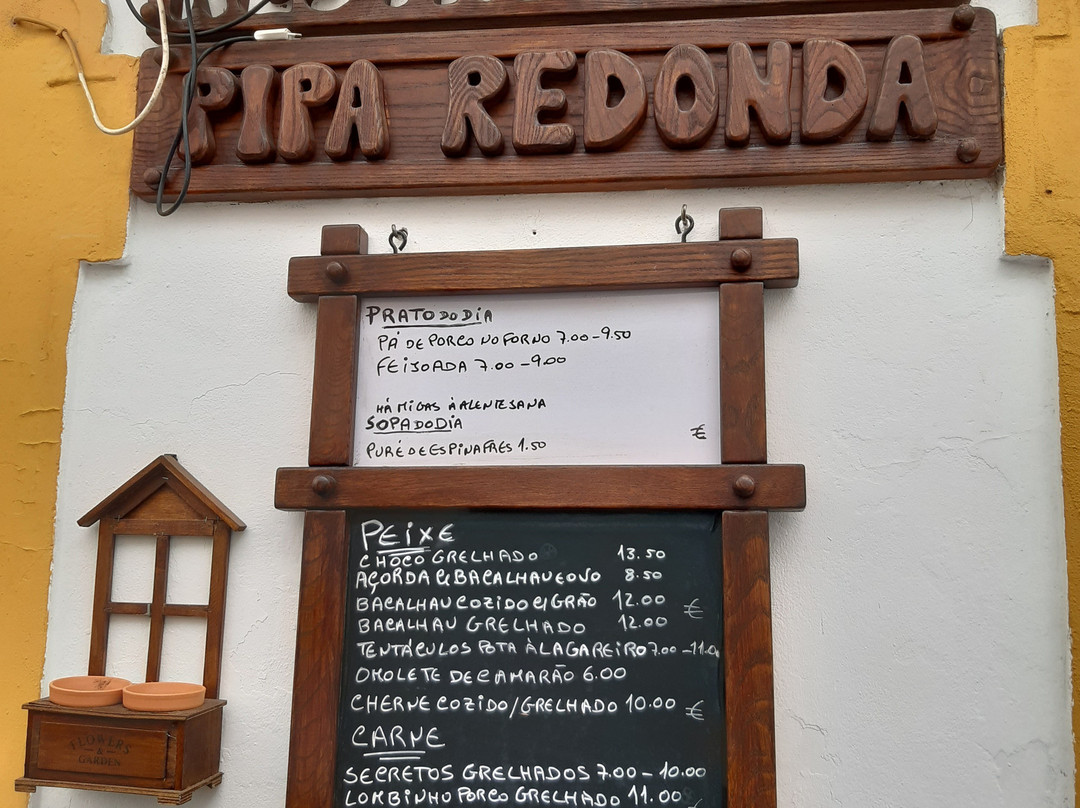 PIPA REDONDA
PRATO DO DIA
PÁ DE PORCO NO FORNO 7.00-9.50
FEIJOADA 7.00-9.00
HÁ MIGAS À ALENTEJANA
SOPA DO DIA
€
PURÉ DE ESPINAFRES 1.50
PEIXE
CHOCO GRELHADO 13.50
AÇORDA C/BACALHAU E OVO 8.50
BACALHAU COZIDO C/GRÃO 12.00
€
BACALHAU GRELHADO 12.00
TENTÁCULOS POTA À LAGAREIRO 7.00-11.0
OMOLETE DE CAMARÃO 6.00
CHERNE COZIDO/GRELHADO 10.00 €
CARNE
SECRETOS GRELHADOS 7.00-10.00
LOMBINHO PORCO GRELHADO 11.00
FLOWERS
&
GARDEN